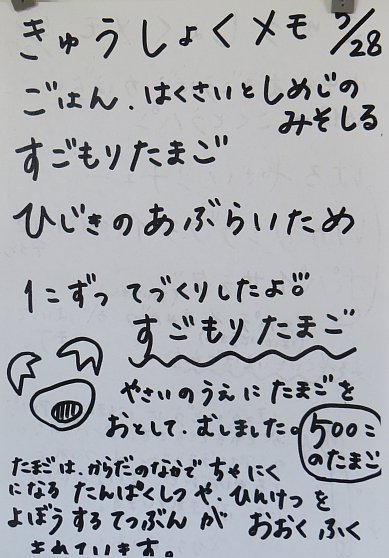 きゅうしょくメモ 5/28
ごはん.はくさいとしめじの
みそしる
すごもりたまご
ひじきのあぶらいため
1こずつ てづくりしたよ!!
すごもりたまご
やさいのうえに たまごを
おとして、むしました。
500こ
のたまご
たまごは、からだのなかで ちゃにく
になる たんぱくしつや、ひんけつを
よぼうするてつぶん が おおく ふく
まれています。